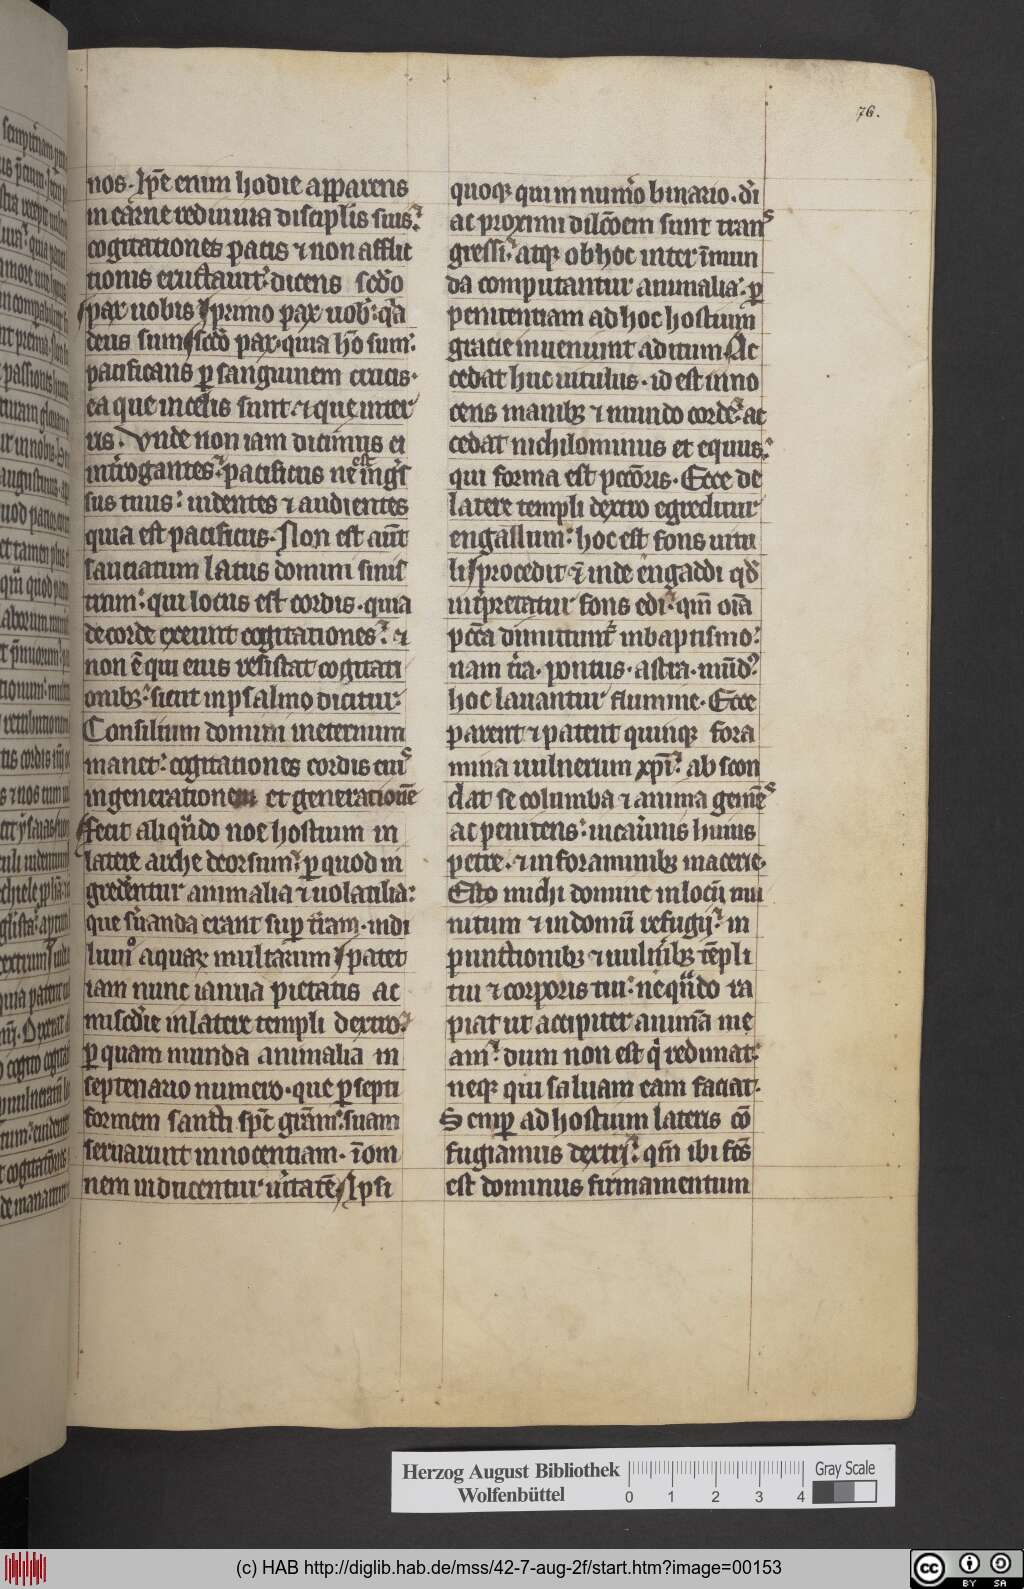 76.
nos. Ip̄e enim hodie apparens
in carne rediuiua disciplis suis:
cogitationes pacis ⁊ non afflic
tionis eructauit: dicens sc̄do
pax uobis Primo pax uob: q̄a
deus sum sc̄do pax. quia hō sum.
pacificans ꝑ sanguinem crucis.
ea que in celis sunt ⁊ que in ter
ris. Vnde non iam dicimus ei
int̄rogantes. pacificus ne est īgres
sus tuus: uidentes ⁊ audientes
quia est pacificus. Non est aūt
sauciatum latus domini sinis
trum: qui locus est cordis. quia
de corde exeunt cogitationes: ⁊
non ē qui eius resistat cogitati
onibꝫ: sicut in psalmo dicitur.
Consilium domini in eternum
manet: cogitationes cordis eiꝰ
in generationem et generationē
Fecit aliqn̄do noe hostium in
latere arche deorsum: ꝑ quod in
gredērentur animalia ⁊ uolatilia:
que sūanda erant suꝑ t̄ram. in di
luuio aquaꝝ multarum Patet
iam nunc ianua pietatis ac
misc̄die in latere templi dextro:
ꝑ quam munda animalia in
septenario numero. que ꝑ septi
formem sancti sp̄c grām: suam
seruarunt innocentiam. ī om
nem inducentur ūitatē Ipsi
quoqꝫ qui in num̄o binario. dei
ac proximi dilc̄oem sunt trans
gressi: atqꝫ ob hoc inter īmun
da computantur animalia: ꝑ
penitentiam ad hoc hostium
gracie inueniunt aditum. Ac
cedat huc uitulus. id est inno
cens manibꝫ ⁊ mundo corde: ac
cedat nichilominus et equus:
qui forma est pc̄c̄oris. Ecce de
latere templi dextro egreditur
engallum: hoc est fons uitu
li procedit ⁊ inde engaddi qd̄
int̄pretatur fons edi: qm̄ oīa
pc̄c̄a dimittunt̄ in baptismo:
nam t̄ra. pontus. astra. mūdꝰ
hoc lauantur flumine. Ecce
parent ⁊ patent quinqꝫ fora
mina uulnerum xp̄i: abscon
dat se columba ⁊ anima gemēs
ac penitens: in cau̅nis huius
petre. ⁊ in foraminibꝫ macerie.
Esto michi domine in locū mu
nitum ⁊ in domū refugij: in
punctionibꝫ ⁊ uuln̄ibꝫ tēpli
tui ⁊ corporis tui: ne qn̄do ra
piat ut accipiter animā me
am: dum non est q̄ redimat:
neqꝫ qui saluam eam faciat.
Semꝑ ad hostium lateris cō
fugiamus dextri: qm̄ ibi fc̄s
est dominus firmamentum
Herzog August Bibliothek
Wolfenbüttel
0 1 2 3 4
Gray Scale
(c) HAB http://diglib.hab.de/mss/42-7-aug-2f/start.htm?image=00153
cc BY SA